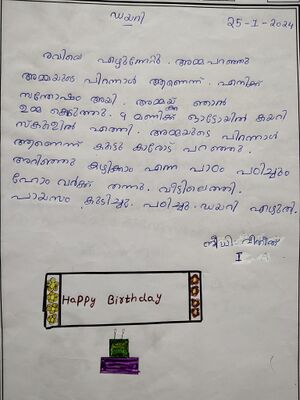 ഡയറി
25-1-2024
രവിലെ എഴുന്നേറ്റു. അമ്മ പറഞ്ഞു
അമ്മയുടെ പിറന്നാൾ ആണെന്ന്. എനിക്ക്
സന്തോഷം ആയി. അമ്മയ്ക്ക് ഞാൻ
ഉമ്മ കൊടുത്തു. 9 മണിക്ക് ഓട്ടോയിൽ കയറി
സ്കൂളിൽ എത്തി. അമ്മയുടെ പിറന്നാൾ
ആണെന്ന് കൂട്ടുകാരോട് പറഞ്ഞു.
അറിഞ്ഞു കഴിക്കാം എന്ന പാഠം പഠിച്ചു
ഹോം വർക്ക് തന്നു. വീട്ടിലെത്തി.
പായസം കുടിച്ചു. പഠിച്ചു. ഡയറി എഴുതി.
I
Happy Birthday